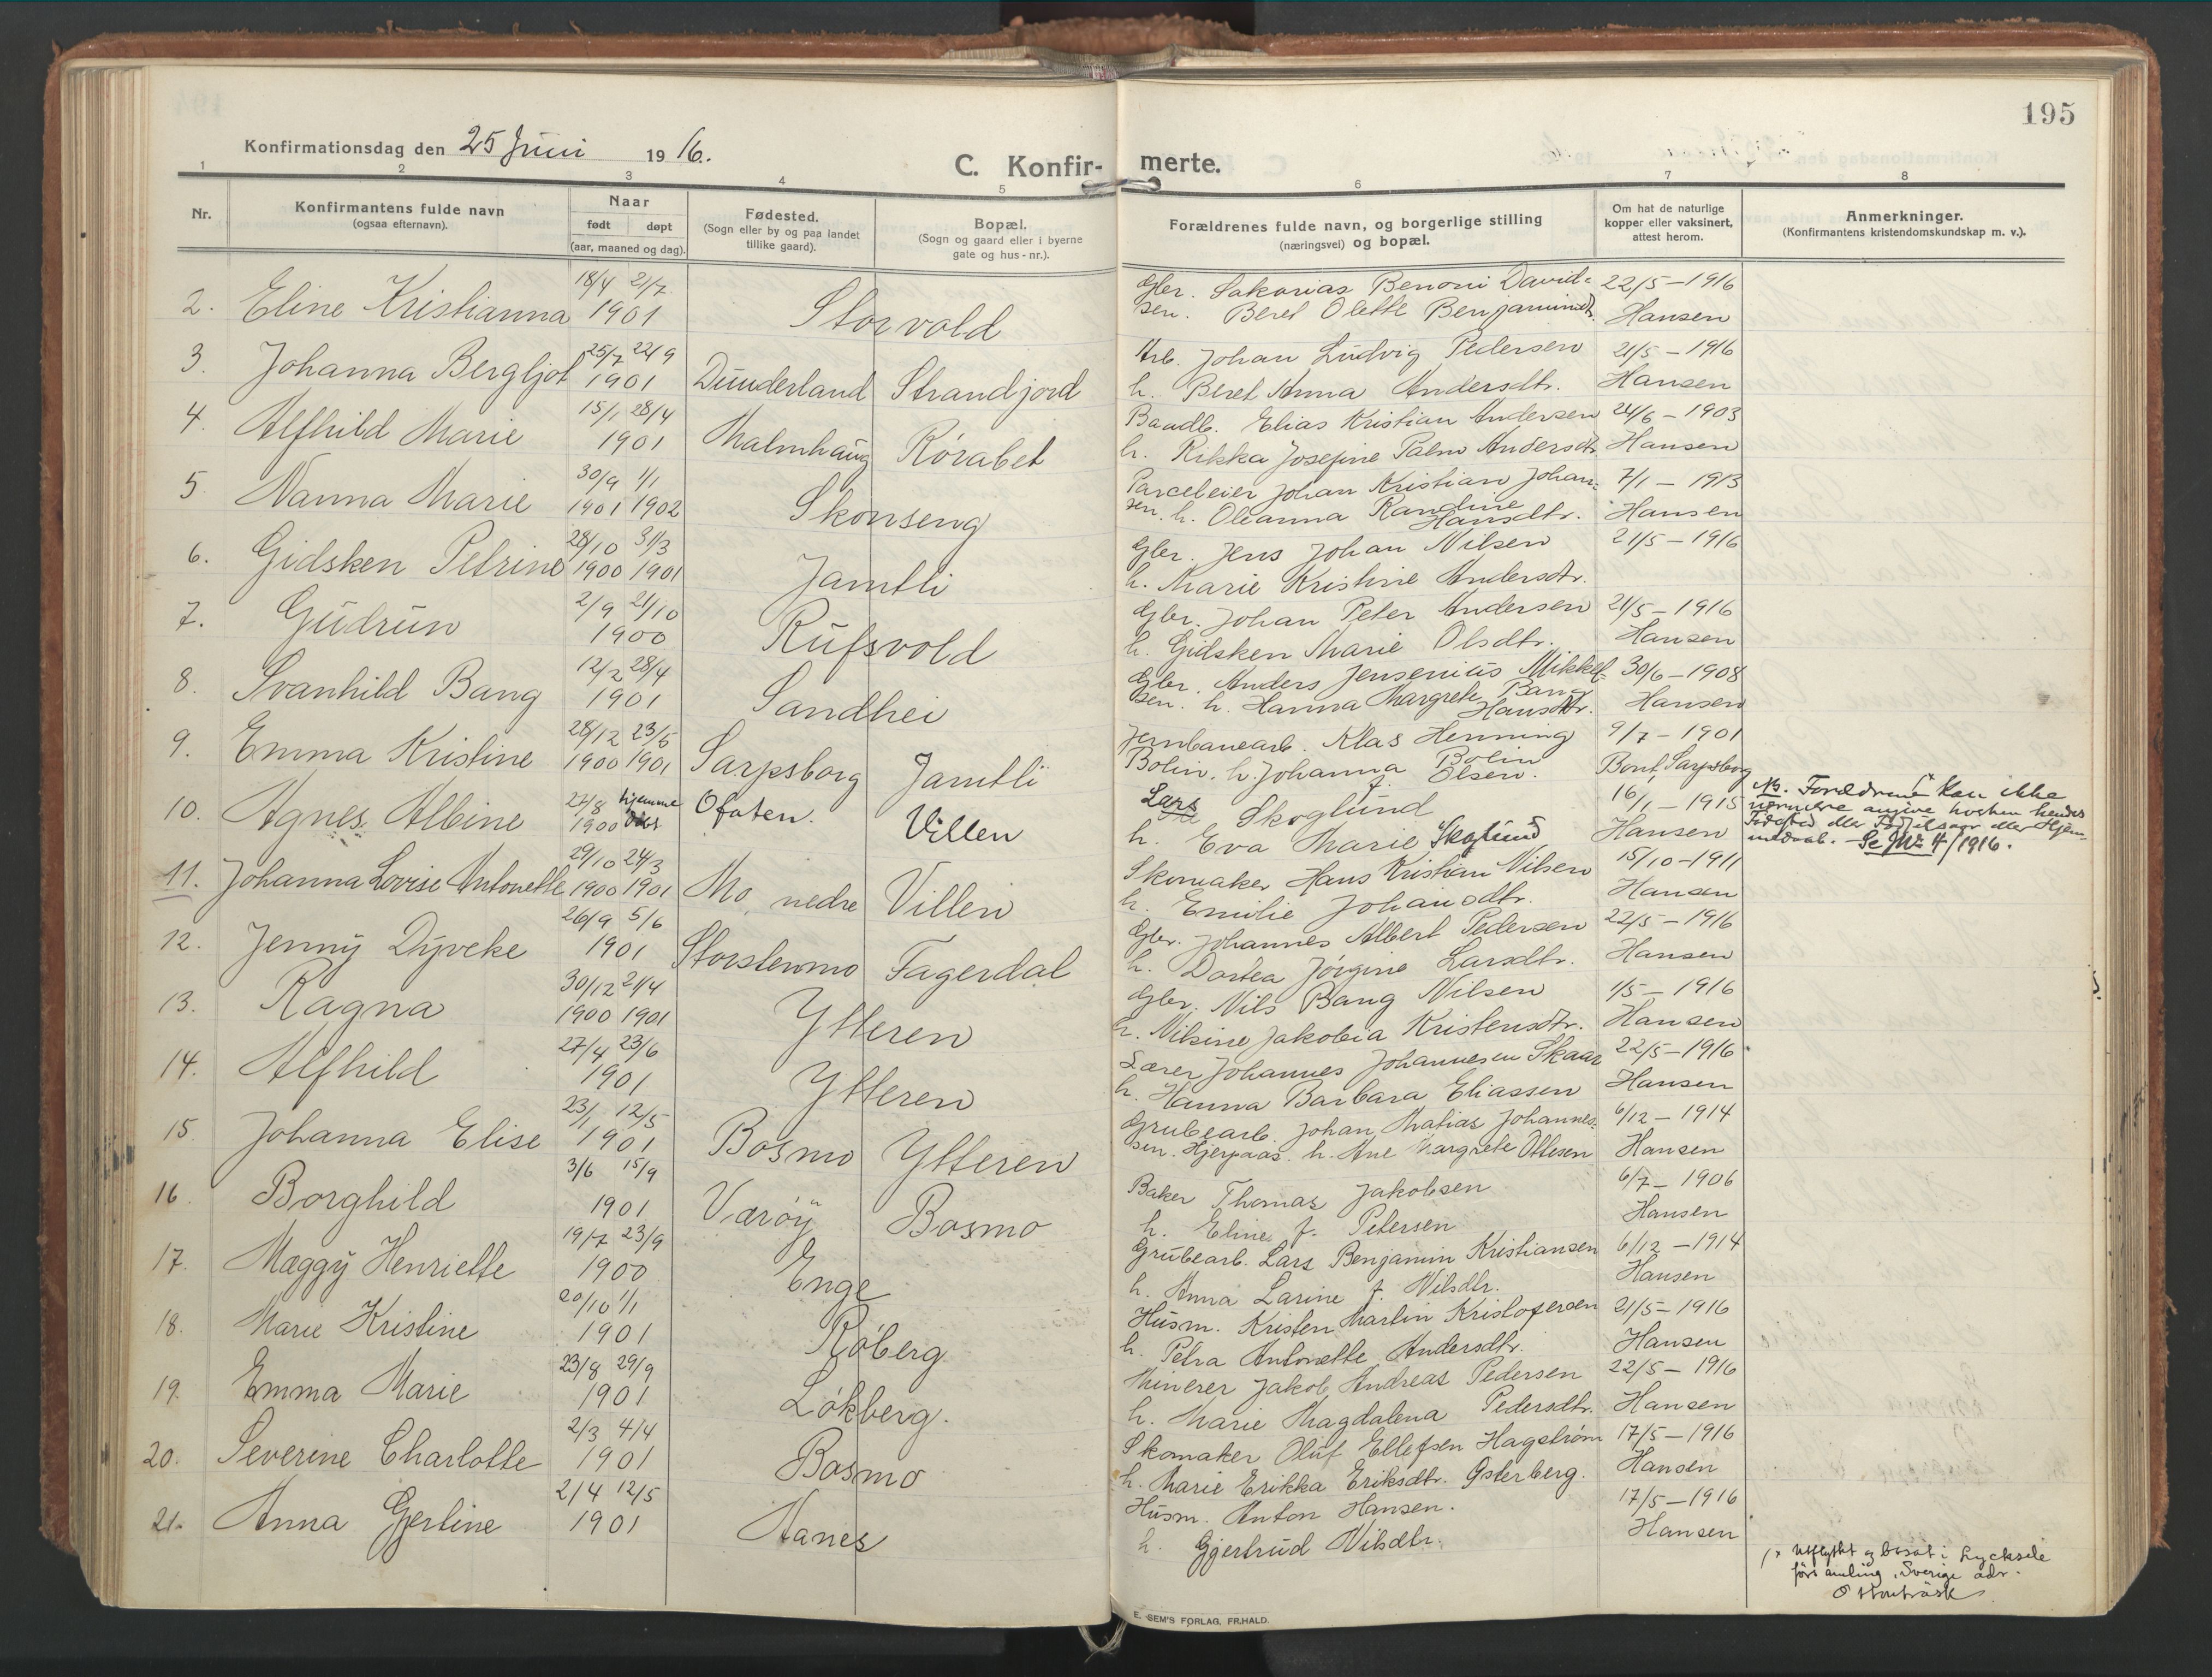 195
Konfirmationsdag den 25 Juni 1916.
C. Konfir- merte.
1 2 3 4 5 6 7 8
Nr.
Konfirmantens fulde navn
(ogsaa efternavn).
Naar
født døpt
(aar, maaned og dag).
Fødested.
(Sogn eller by og paa landet
tillike gaard).
Bopæl.
(Sogn og gaard eller i byerne
gate og hus-nr.).
Forældrenes fulde navn, og borgerlige stilling
(næringsvei) og bopæl.
Om hat de naturlige
kopper eller vaksinert,
attest herom.
Anmerkninger.
(Konfirmantens kristendomskundskap m. v.).
18/4 21/7 Gbr. Sakarias Benoni David- 22/5 – 1916
2. Eline Kristianna 1901 Storvold sen. Beret Olette Benjaminsdt. Hansen
25/7 22/9 Arb. Johan Ludvig Pedersen 21/5 – 1916
3. Johanna Bergljot 1901 Dunderland Strandjord h. Beret Anna Andersdtr. Hansen
15/1 28/4 Baadb. Elias Kristian Andersen 24/6 – 1903
4. Alfhild Marie 1901 Malmhaug Rørabet h. Rikka Josefine Palm Andersdtr. Hansen
30/9 1/1 Parceleier Johan Kristian Johan- 7/1 – 1913
5. Nanna Marie 1901 1902 Skonseng sen. h. Oleanna Randine Hansdtr. Hansen
28/10 31/3 Gbr. Jens Johan Nilsen 21/5 – 1916
6. Gidsken Petrine 1900 1901 Jamtli h. Marie Kristine Andersdtr.
2/9 21/10 Gbr. Johan Peter Andersen 21/5 – 1916
7. Gudrun 1900 Rufsvold h. Gidsken Marie Olsdtr. Hansen
12/2 28/4 Gbr. Anders Jensenius Mikkel- 30/6 – 1908
8. Svanhild Bang 1901 Sandhei sen. h. Hanna Margrete Bang Hansdtr. Hansen
28/12 23/5 Jernbanearb. Klas Henning Bolin 9/7 – 1901
9. Emma Kristine 1900 1901 Sarpsborg Jamtli Bolin. h. Johanna f. Olsen. Sarpsborg
27/8 hjemme Lars Skoglund 16/1 – 1915
10. Agnes Albine 1900 døbt Ofoten. Villen h. Eva Marie Skoglund Hansen
Nb. Forældrene kan ikke
nærmere angive hverken hendes
Fødested eller Fødselsaar eller Hjem-
medaab. – Se 4/1916.
29/10 24/3 Skomaker Hans Kristian Nilsen 15/10 – 1911
11. Johanna Lovise Antonette 1900 1901 Mo nedre Villen h. Emilie Johansdtr. Hansen
26/9 5/6 Gbr. Johannes Albert Pedersen 22/5 – 1916
12. Jenny Dyveke 1901 Storstenmo Fagerdal h. Dortea Jørgine Larsdtr. Hansen
30/12 21/4 Gbr. Nils Bang Nilsen 1/5 – 1916
13. Ragna 1900 1901 Ytteren h. Nilsine Jakobia Kristensdtr. Hansen
27/4 23/6 Lærer Johannes Johannesen Skaar 22/5 – 1916
14. Alfhild 1901 Ytteren h. Hanna Barbara Eliassen Hansen
23/1 12/5 Grubearb. Johan Matias Johannes- 6/12 – 1914
15. Johanna Elise 1901 Bosmo Ytteren sen. Hjerpaas. h. Ane Margrete Ottesen Hansen
3/6 15/9 Baker Thomas Jakobsen 6/7 – 1906
16. Borghild 1901 Værøy Bosmo h. Eline f. Petersen Hansen
19/7 23/9 Grubearb. Lars Benjamin Kristiansen 6/12 – 1914
17. Mæggy Henriette 1900 Enge h. Anna Larine f. Nilsdtr. Hansen
20/10 1/1 Husm. Kristen Martin Kristofersen 21/5 – 1916
18. Marie Kristine 1901 Røberg h. Petra Antonette Andersdtr. Hansen
23/8 29/9 Minerer Jakob Andreas Pedersen 22/5 – 1916
19. Emma Marie 1901 Løkberg. h. Marie Magdalena Pedersdtr. Hansen
2/3 4/4 Skomaker Oluf Ellefsen Hagstrøm 17/5 – 1916
20. Severine Charlotte 1901 Bosmo h. Marie Erikka Eriksdtr. Østerberg. Hansen
2/4 12/5 Husm. Anton Hansen. 17/5 – 1916
21. Anna Gjertine 1901 Hanes h. Gjertrud Nilsdtr. Hansen
Utflyttet og bosat i Lycksele
församling, Sverige adr.
E. SEM'S FORLAG, FR.HALD.